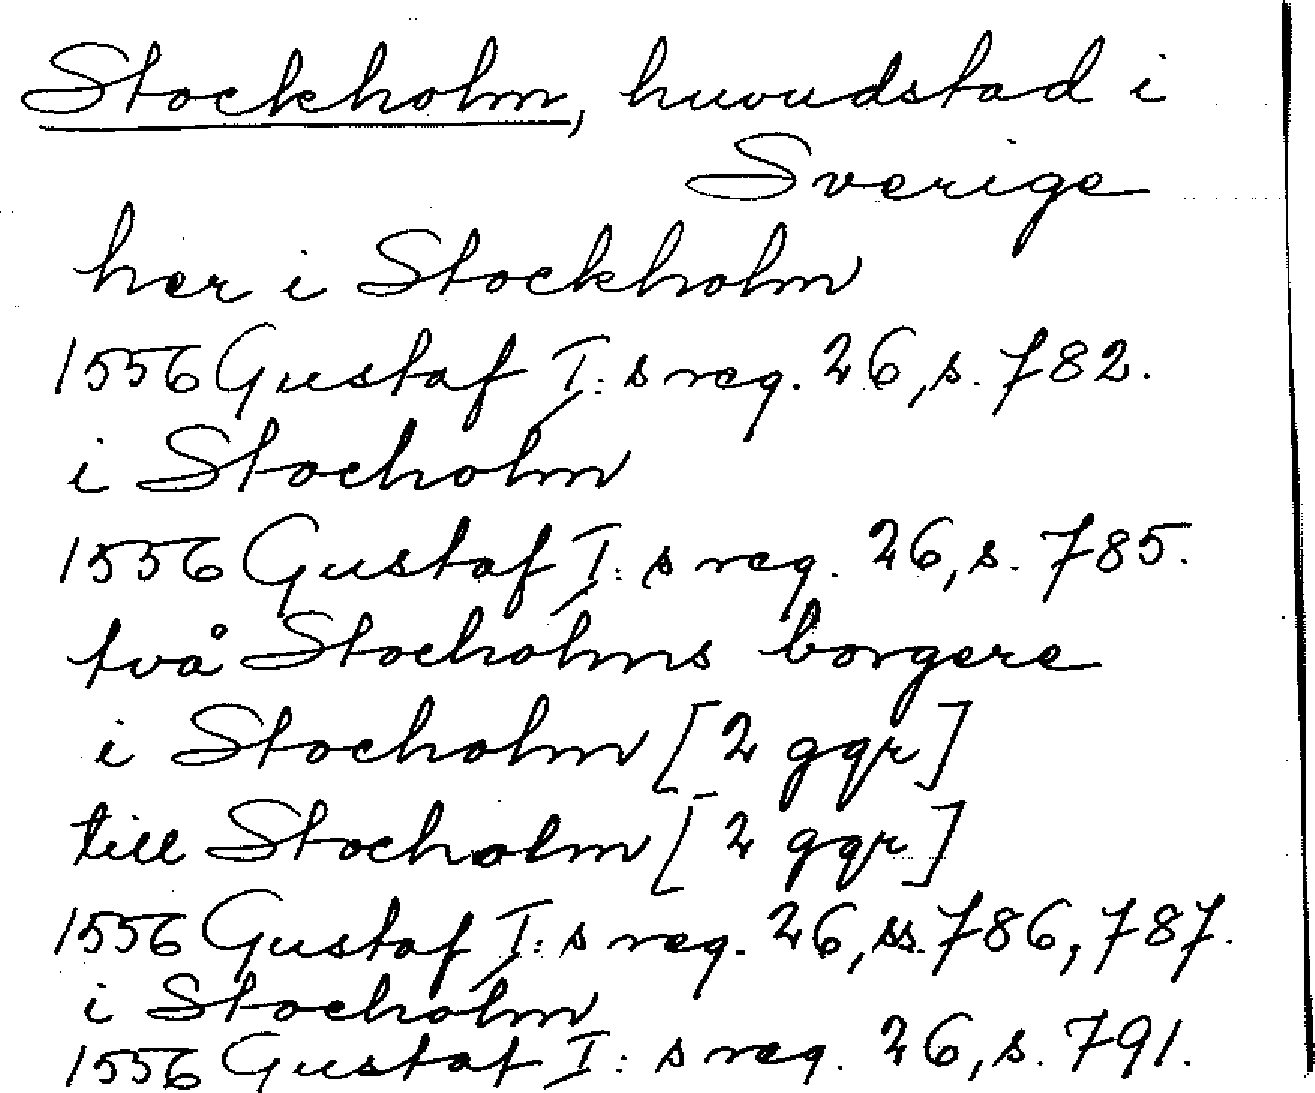 Stockholm, huvudstad i
Sverige
her i Stockholm
1556 Gustaf I:s reg. 26, s. 782.
i Stocholm
1556 Gustaf I:s reg. 26, s. 785.
två Stocholms borgere
i Stocholm [2 ggr]
till Stocholm [2 ggr]
1556 Gustaf I:s reg. 26, ss. 786, 787.
i Stocholm
1556 Gustaf I:s reg. 26, s. 791.